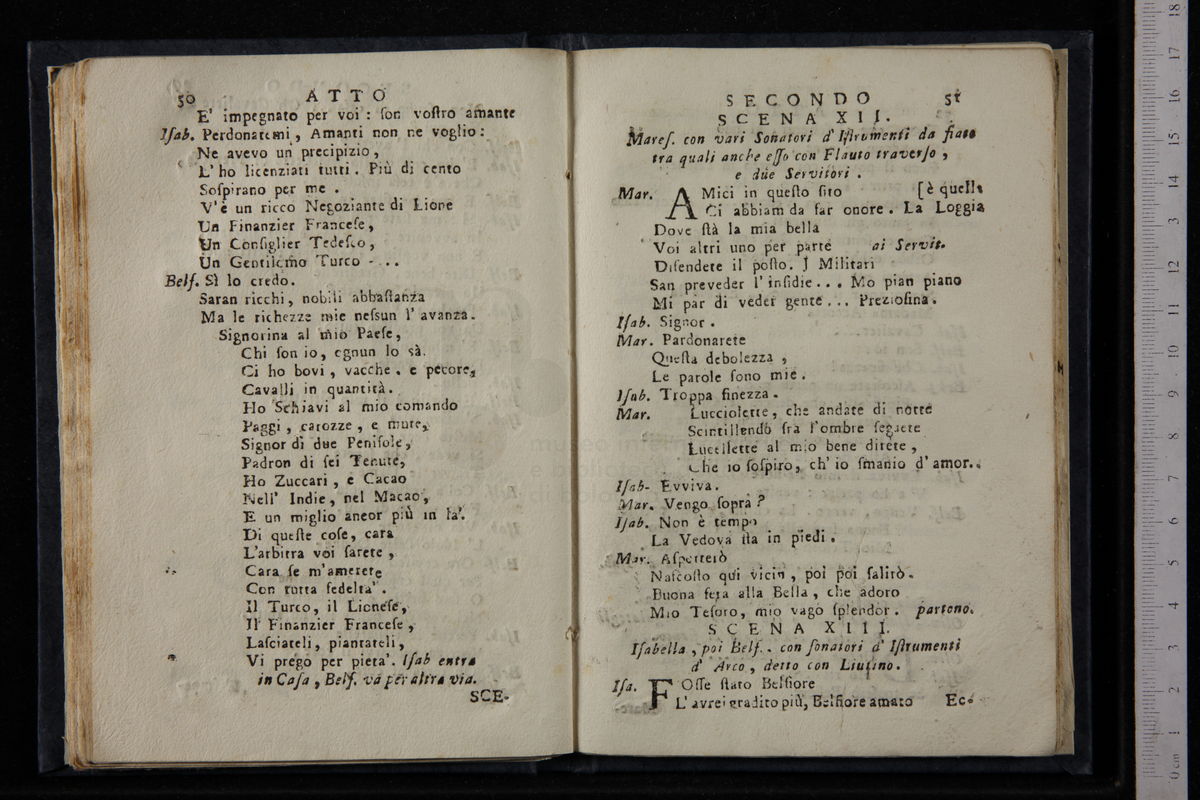 50 ATTO
E' impegnato per voi : ſon voſtro amante
Iſab. Perdonatemi, Amanti non ne voglio :
Ne avevo un precipizio,
L' ho licenziati tutti. Più di cento
Soſpirano per me .
V'è un ricco Negoziante di Lione
Un Finanzier Franceſe,
Un Conſiglier Tedeſco,
Un Gentilomo Turco - ...
Belf. Sì lo credo.
Saran ricchi, nobili abbaſtanza
Ma le richezze mie neſsun l' avanza.
Signorina al mio Paeſe,
Chi ſon io, ognun lo sà.
Ci ho bovi, vacche . e pecore,
Cavalli in quantità.
Ho Schiavi al mio comando
Paggi, carozze, e mute,
Signor di due Peniſole,
Padron di ſei Tenute,
Ho Zuccari, e Cacao
Nell' Indie, nel Macao,
E un miglio ancor più in là.
Di queſte coſe, cara
L'arbitra voi ſarete,
Cara ſe m'amerete
Con tutta fedeltà.
Il Turco, il Lioneſe,
Il Finanzier Franceſe,
Laſciateli, piantateli,
Vi prego per pieta'. Iſab entra
in Caſa, Belf. va per altra via.
SCE-
SECONDO 51
SCENA XII.
Mareſ. con vari Sonatori d' Iſtrumenti da fiato
tra quali anche eſſo con Flauto traverſo,
e due Servitori .
Mar. AMici in queſto ſito [è quella
Ci abbiam da far onore. La Loggia
Dove ſtà la mia bella
Voi altri uno per parte ai Servit.
Difendete il poſto. I Militari
San preveder l' inſidie... Mo pian piano
Mi par di veder gente... Prezioſina.
Iſab. Signor .
Mar. Pardonarete
Queſta debolezza,
Le parole ſono mie.
Iſab. Troppa finezza.
Mar. Lucciolette, che andate di notte
Scintillendo fra l'ombre ſegrete
Lucellette al mio bene direte,
Che io ſoſpiro, ch' io ſmanio d' amor.
Iſab- Evviva.
Mar. Vengo ſopra?
Iſab. Non è tempo
La Vedova ſta in piedi.
Mar. Aſpetterò
Naſcoſto quì vicin, poi poi ſalirò.
Buona ſera alla Bella, che adoro
Mio Teſoro, mio vago ſplendor. partono.
SCENA XIII.
Iſabella, poi Belf.. con ſonatori d' Iſtrumenti
d' Arco, detto con Liutino.
Iſa. FOſſe ſtato Belfiore
L' avrei gradito più, Belfiore amato Ec-